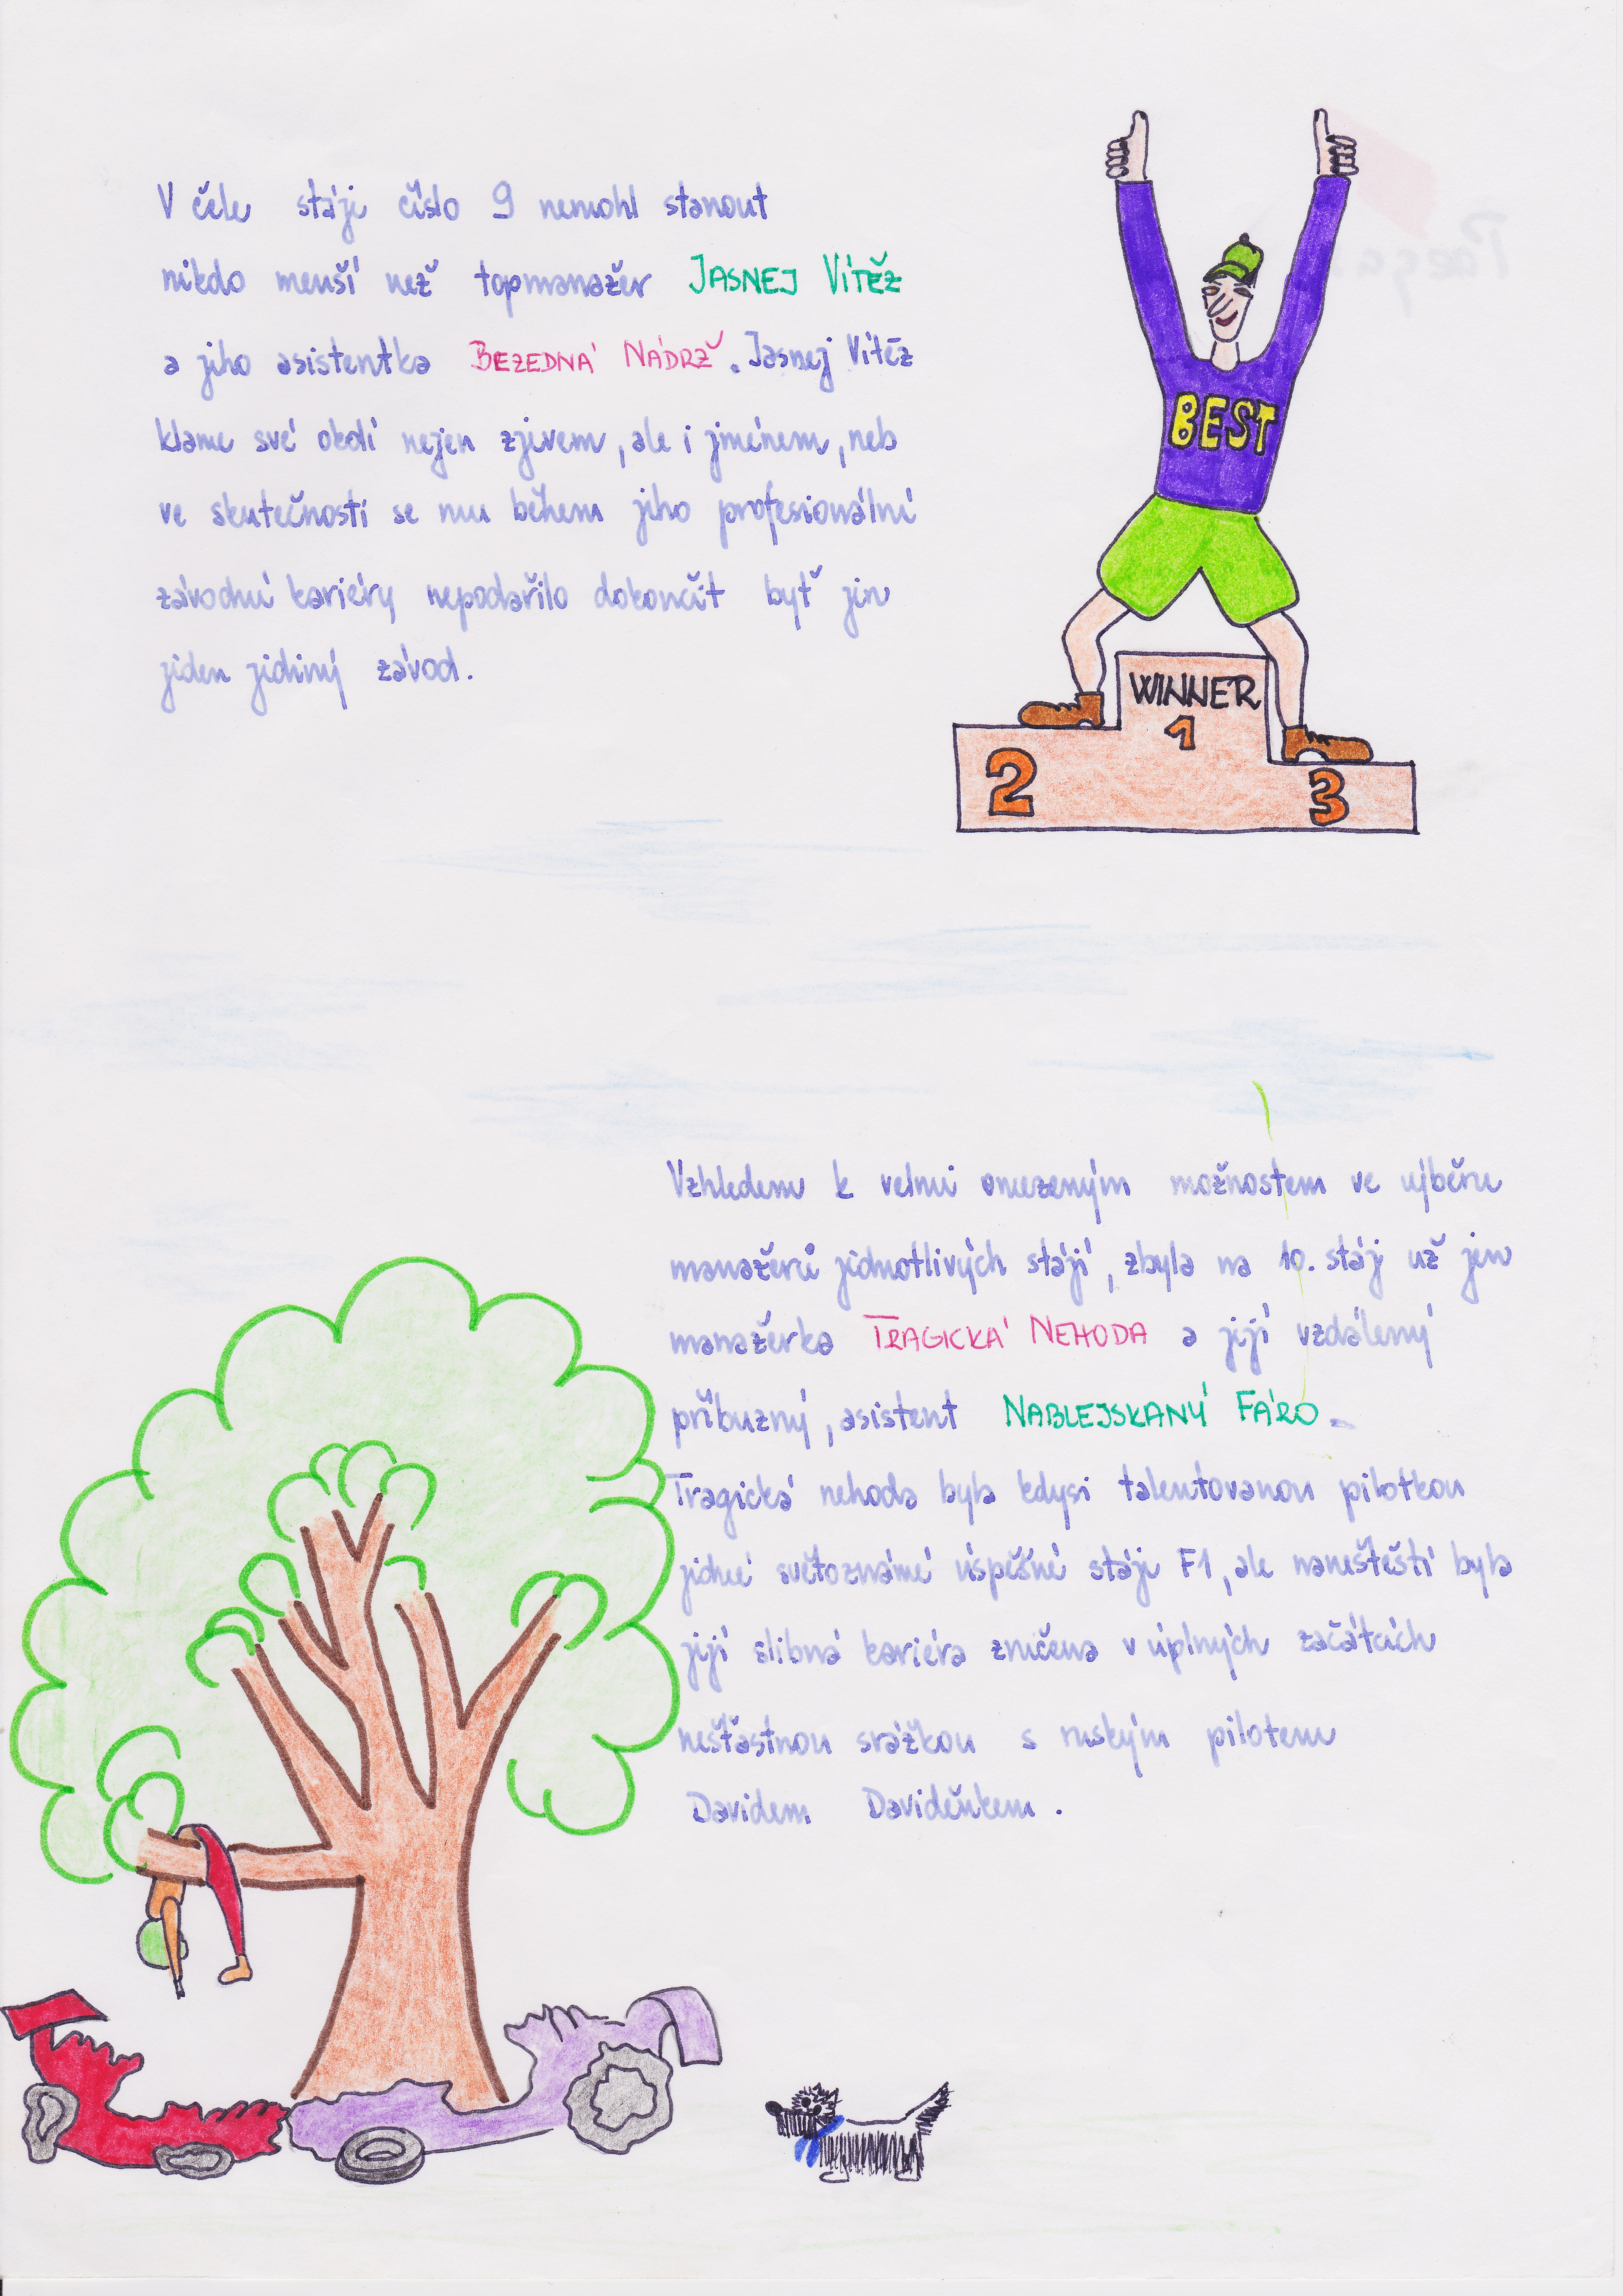 V čele stáje číslo 9 nemohl stanout
nikdo menší než topmanažer JASNEJ VÍTĚZ
a jeho asistentka BEZEDNÁ NÁDRŽ. Jasnej Vítěz
klame své okolí nejen zjevem, ale i jménem, neb
ve skutečnosti se mu během jeho profesionální
závodní kariéry nepodařilo dokončit byť jen
jeden jediný závod.
BEST
WINNER
1
2
3
Vzhledem k velmi omezeným možnostem ve výběru
manažerů jednotlivých stájí, zbyla na 10. stáj už jen
manažerka TRAGICKÁ NEHODA a její vzdálený
příbuzný, asistent NABLEJSKANÝ FÁRO.
Tragická nehoda byla kdysi talentovanou pilotkou
jedné světoznámé úspěšné stáje F1, ale naneštěstí byla
její slibná kariéra zničena v úplných začátcích
nešťastnou srážkou s ruským pilotem
Davidem Daviděnkem.